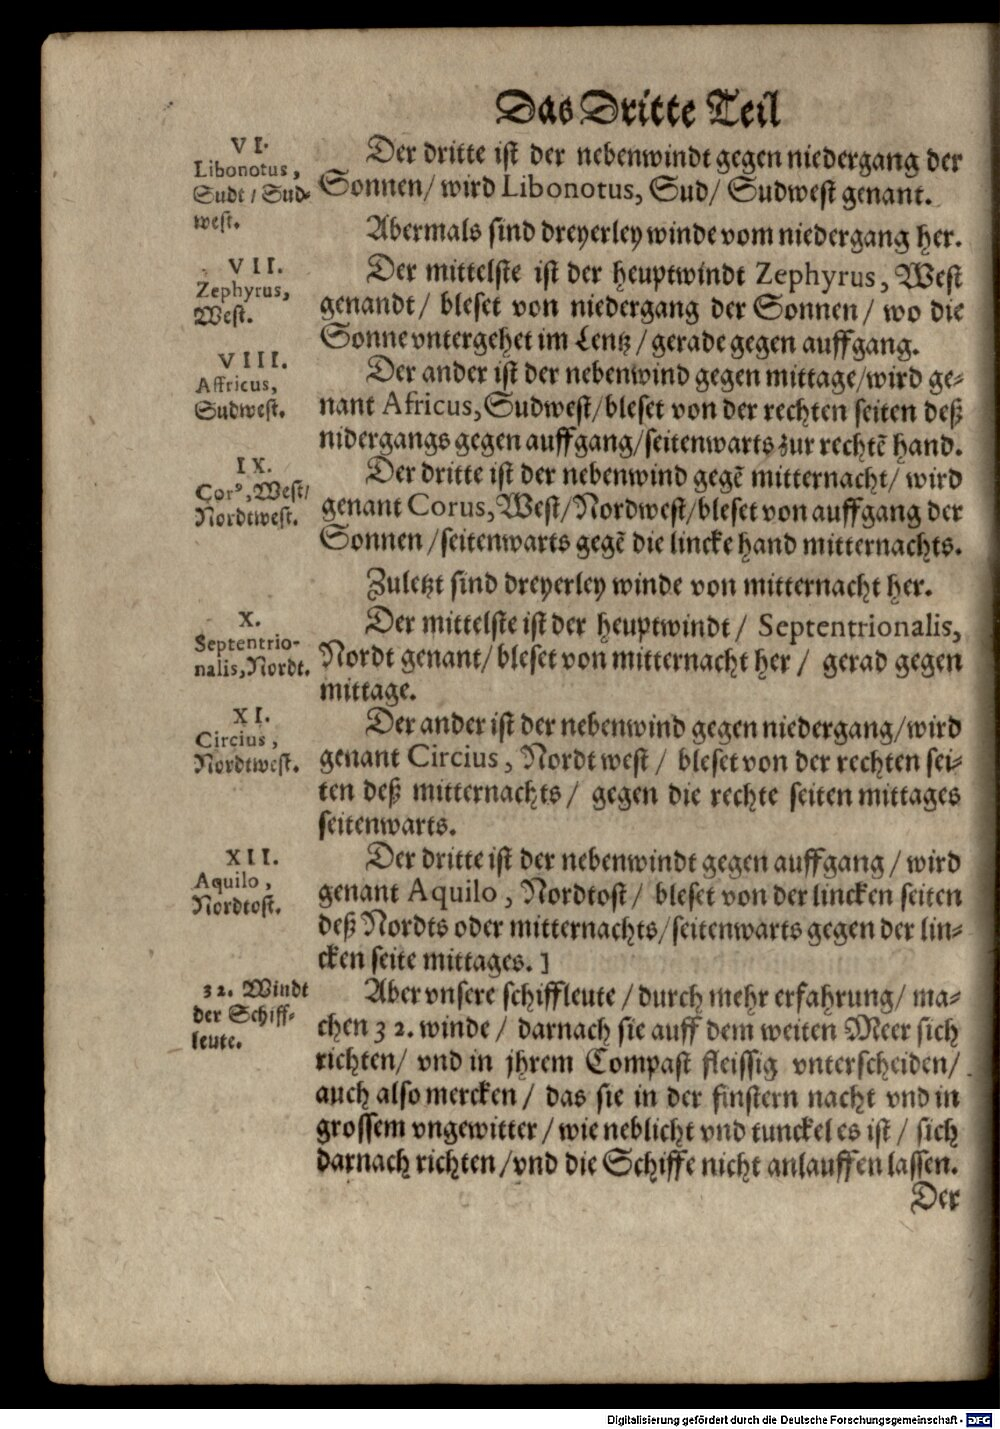 Das Dritte Teil
VI.
Libonotus,
Sudt / Sud-
west.
Der dritte ist der nebenwindt gegen niedergang der
Sonnen/ wird Libonotus, Sud/ Sudwest genant.
Abermals sind dreyerley winde vom niedergang her.
VII.
Zephyrus,
West.
Der mittelste ist der heuptwindt Zephyrus, West
genandt/ bleset von niedergang der Sonnen/ wo die
Sonne vntergehet im Lentz/ gerade gegen auffgang.
VIII.
Affricus,
Sudwest.
Der ander ist der nebenwind gegen mittage/wird ge-
nant Africus, Sudwest/bleset von der rechten seiten deß
nidergangs gegen auffgang/seitenwarts zur rechtẽ hand.
IX.
Corꝰ, West/
Nordtwest.
Der dritte ist der nebenwind gegẽ mitternacht/ wird
genant Corus, West/Nordwest/bleset von auffgang der
Sonnen /seitenwarts gegẽ die lincke hand mitternachts.
Zuletzt sind dreyerley winde von mitternacht her.
X.
Septentrio-
nalis, Nordt.
Der mittelste ist der heuptwindt/ Septentrionalis,
Nordt genant/ bleset von mitternacht her/ gerad gegen
mittage.
XI.
Circius,
Nordtwest.
Der ander ist der nebenwind gegen niedergang/wird
genant Circius, Nordt west/ bleset von der rechten sei-
ten deß mitternachts/ gegen die rechte seiten mittages
seitenwarts.
XII.
Aquilo,
Nordtost.
Der dritte ist der nebenwindt gegen auffgang/ wird
genant Aquilo, Nordtost/ bleset von der lincken seiten
deß Nordts oder mitternachts/seitenwarts gegen der lin-
cken seite mittages. ]
32. Windt
der Schiff-
leute.
Aber vnsere schiffleute/durch mehr erfahrung/ ma-
chen 32. winde/ darnach sie auff dem weiten Meer sich
richten/ vnd in jhrem Compast fleissig vnterscheiden/
auch also mercken/ das sie in der finstern nacht vnd in
grossem vngewitter/wie neblicht vnd tunckel es ist/ sich
darnach richten/vnd die Schiffe nicht anlauffen lassen.
Der
Digitalisierung gefördert durch die Deutsche Forschungsgemeinschaft - DFG